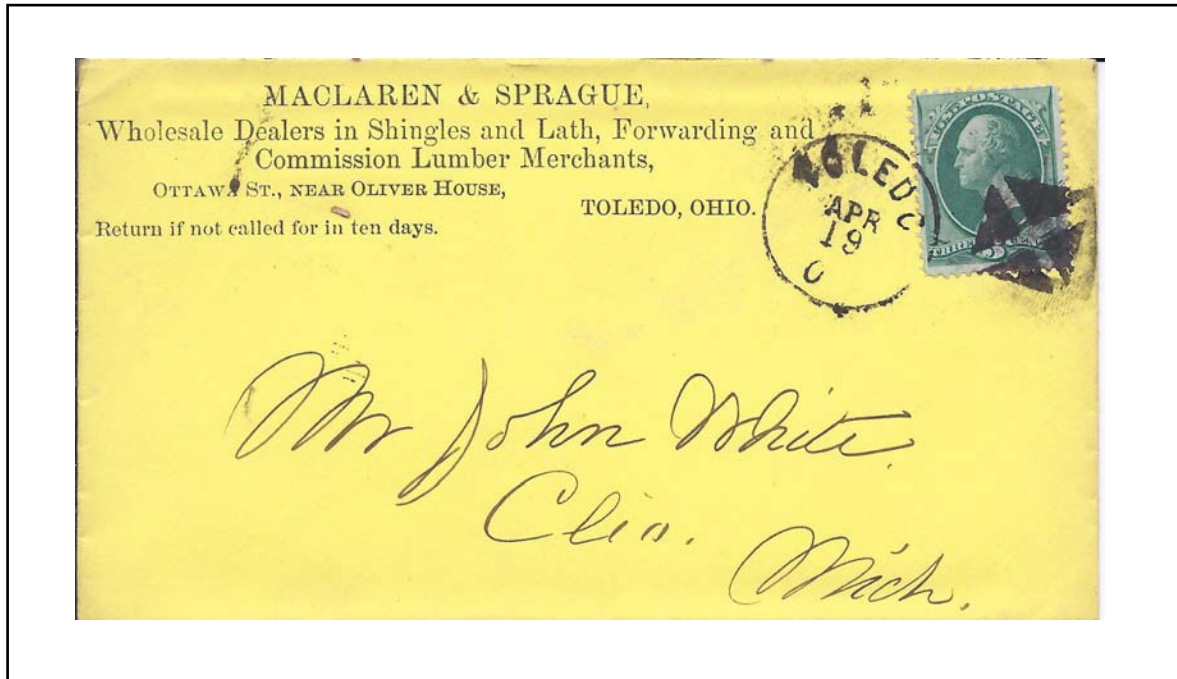 MACLAREN & SPRAGUE,
Wholesale Dealers in Shingles and Lath, Forwarding and
Commission Lumber Merchants,
OTTAWA ST., NEAR OLIVER HOUSE,
TOLEDO, OHIO.
Return if not called for in ten days.
TOLEDO
APR
19
O
U.S. POSTAGE
THREE 3 CENTS
Mr John White.
Clio.
Mich.